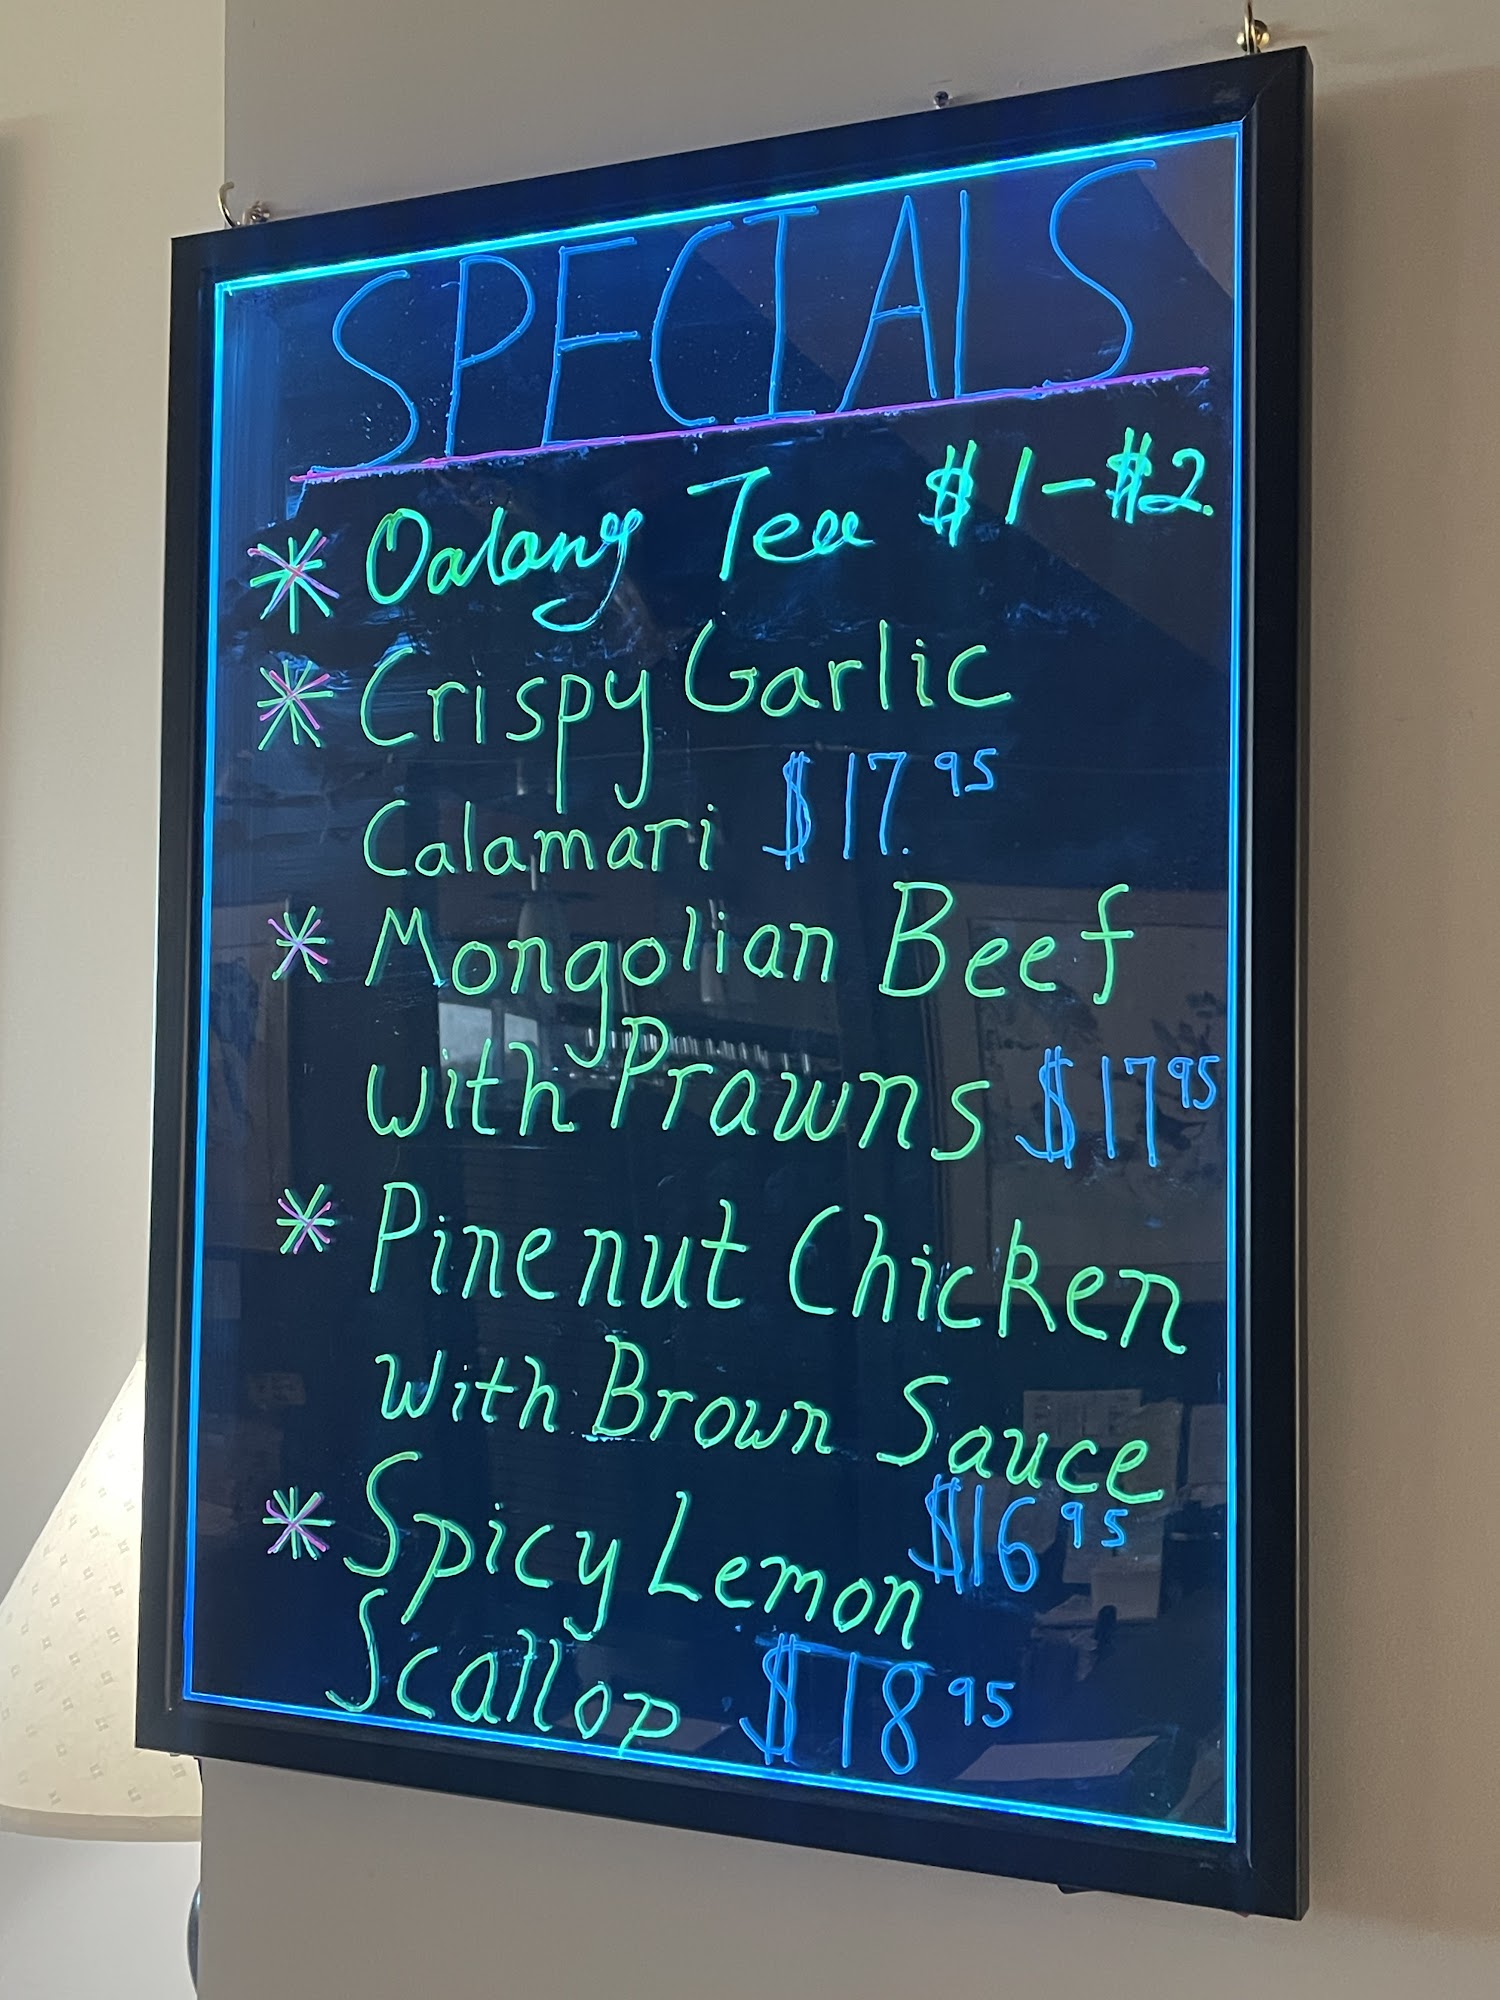 SPECIALS
* Oalang Tea $1-$2.
* Crispy Garlic
Calamari $17.95
* Mongolian Beef
with Prawns $17 95
* Pinenut Chicken
with Brown Sauce
$16 95
* Spicy Lemon
Scallop $18 95